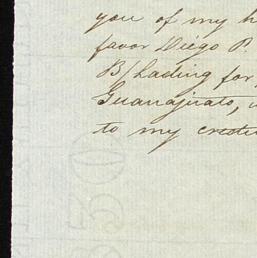 you of my h
favor Diego P.
B/Lading for
Guanajuato,
to my credit